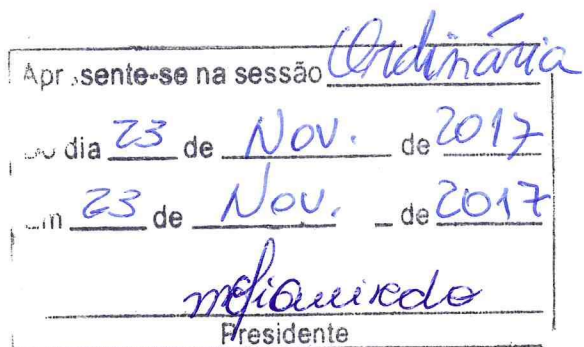 Apresente-se na sessão Ordinária
do dia 23 de Nov. de 2017
Em 23 de Nov. de 2017
Presidente